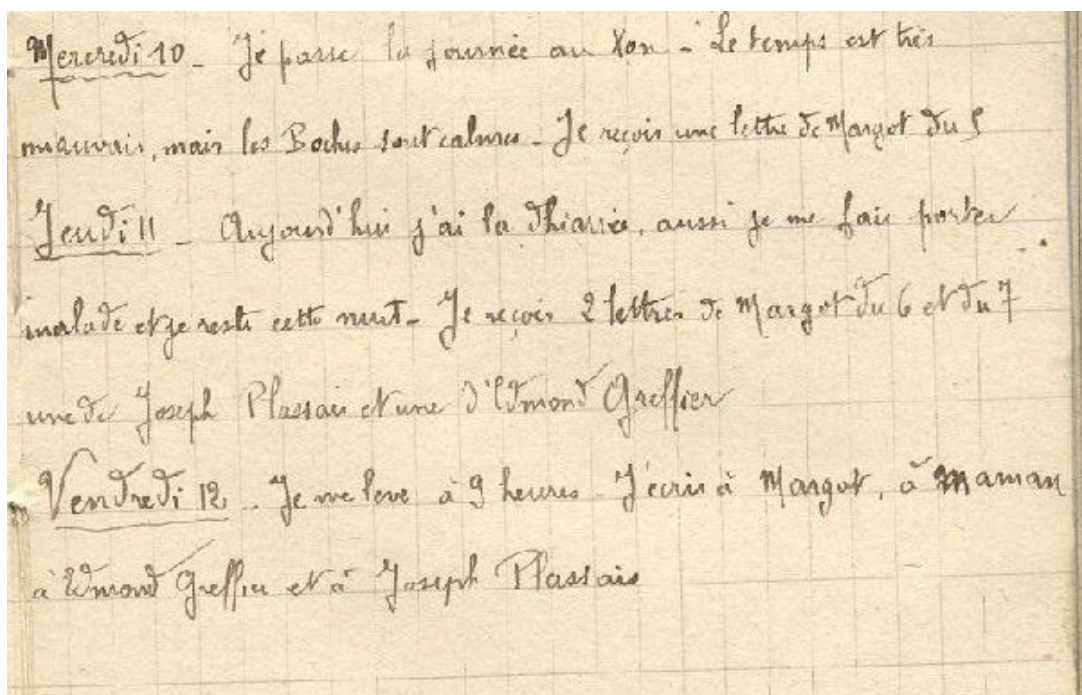 Mercredi 10 - Je passe la journée au Xon - Le temps est très
mauvais, mais les Boches sont calmes - Je reçois une lettre de Margot du 5
Jeudi 11 - Aujourd'hui j'ai la dhiarrée, aussi je me fais porter
malade et je reste cette nuit - Je reçois 2 lettres de Margot du 6 et du 7
une de Joseph Plassais et une d'Edmond Greffier
Vendredi 12 - Je me leve à 9 heures - J'écris à Margot, à Maman
à Edmond Greffier et à Joseph Plassais